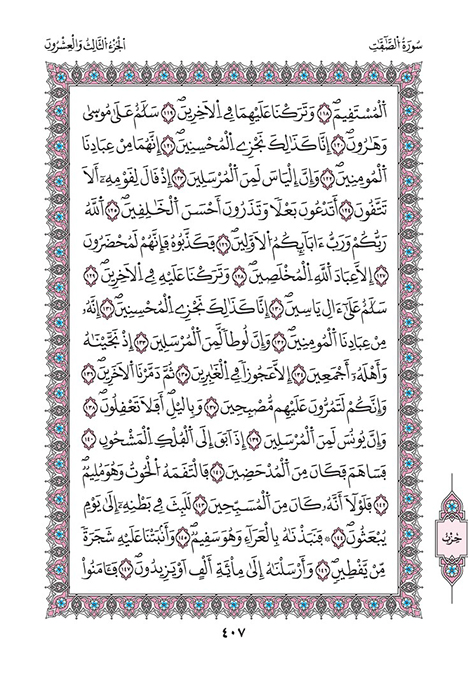 سُورَةُ الصَّٰٓفَّٰتِ
الْجُزْءُ الثَّالِثُ وَالْعِشْرُونَ
اَ۬لْمُسْتَقِيمَۖ ١١٨ وَتَرَكْنَا عَلَيْهِمَا فِے اِ۬لَاخِرِينَۖ ١١٩ سَلَٰمٌ عَلَىٰ مُوس۪ىٰ
وَهَٰرُونَۖ ١٢٠ إِنَّا كَذَٰلِكَ نَجْزِے اِ۬لْمُحْسِنِينَۖ ١٢١ إِنَّهُمَا مِنْ عِبَادِنَا
اَ۬لْمُومِنِينَۖ ١٢٢ وَإِنَّ إِلْيَاسَ لَمِنَ اَ۬لْمُرْسَلِينَ ١٢٣ إِذْ قَالَ لِقَوْمِهِۦٓ أَلَا
تَتَّقُونَۖ ١٢٤ أَتَدْعُونَ بَعْلاٗ وَتَذَرُونَ أَحْسَنَ اَ۬لْخَٰلِقِينَۖ ١٢٥ اَ۬للَّهُ
رَبُّكُمْ وَرَبُّ ءَابَآئِكُمُ اُ۬لَاوَّلِينَۖ ١٢٦ فَكَذَّبُوهُ فَإِنَّهُمْ لَمُحْضَرُونَ
١٢٧ إِلَّا عِبَادَ اَ۬للَّهِ اِ۬لْمُخْلَصِينَۖ ١٢٨ وَتَرَكْنَا عَلَيْهِ فِے اِ۬لَاخِرِينَۖ
١٢٩ سَلَٰمٌ عَلَىٰٓ ءَالِ يَاسِينَۖ ١٣٠ إِنَّا كَذَٰلِكَ نَجْزِے اِ۬لْمُحْسِنِينَۖ ١٣١ إِنَّهُۥ
مِنْ عِبَادِنَا اَ۬لْمُومِنِينَۖ ١٣٢ وَإِنَّ لُوطاٗ لَّمِنَ اَ۬لْمُرْسَلِينَ ١٣٣ إِذْ نَجَّيْنَٰهُ
وَأَهْلَهُۥٓ أَجْمَعِينَ ١٣٤ إِلَّا عَجُوزاٗ فِے اِ۬لْغَٰبِرِينَۖ ١٣٥ ثُمَّ دَمَّرْنَا اَ۬لَاخَرِينَۖ ١٣٦
وَإِنَّكُمْ لَتَمُرُّونَ عَلَيْهِم مُّصْبِحِينَ ١٣٧ وَبِالَّيْلِۖ أَفَلَا تَعْقِلُونَۖ ١٣٨
وَإِنَّ يُونُسَ لَمِنَ اَ۬لْمُرْسَلِينَ ١٣٩ إِذَ اَبَقَ إِلَى اَ۬لْفُلْكِ اِ۬لْمَشْحُونِ ١٤٠
فَسَاهَمَ فَكَانَ مِنَ اَ۬لْمُدْحَضِينَۖ ١٤١ فَالْتَقَمَهُ اُ۬لْحُوتُ وَهُوَ مُلِيمٞۖ
١٤٢ فَلَوْلَآ أَنَّهُۥ كَانَ مِنَ اَ۬لْمُسَبِّحِينَ ١٤٣ لَلَبِثَ فِے بَطْنِهِۦٓ إِلَىٰ يَوْمِ
يُبْعَثُونَۖ ١٤٤ ۞ فَنَبَذْنَٰهُ بِالْعَرَآءِ وَهُوَ سَقِيمٞۖ ١٤٥ وَأَنۢبَتْنَا عَلَيْهِ شَجَرَةٗ
مِّنْ يَّقْطِينٖۖ ١٤٦ وَأَرْسَلْنَٰهُ إِلَىٰ مِاْئَةِ أَلْفٍ اَوْ يَزِيدُونَۖ ١٤٧ فَـَٔامَنُواْ
حِزْبٌ
٤٠٧